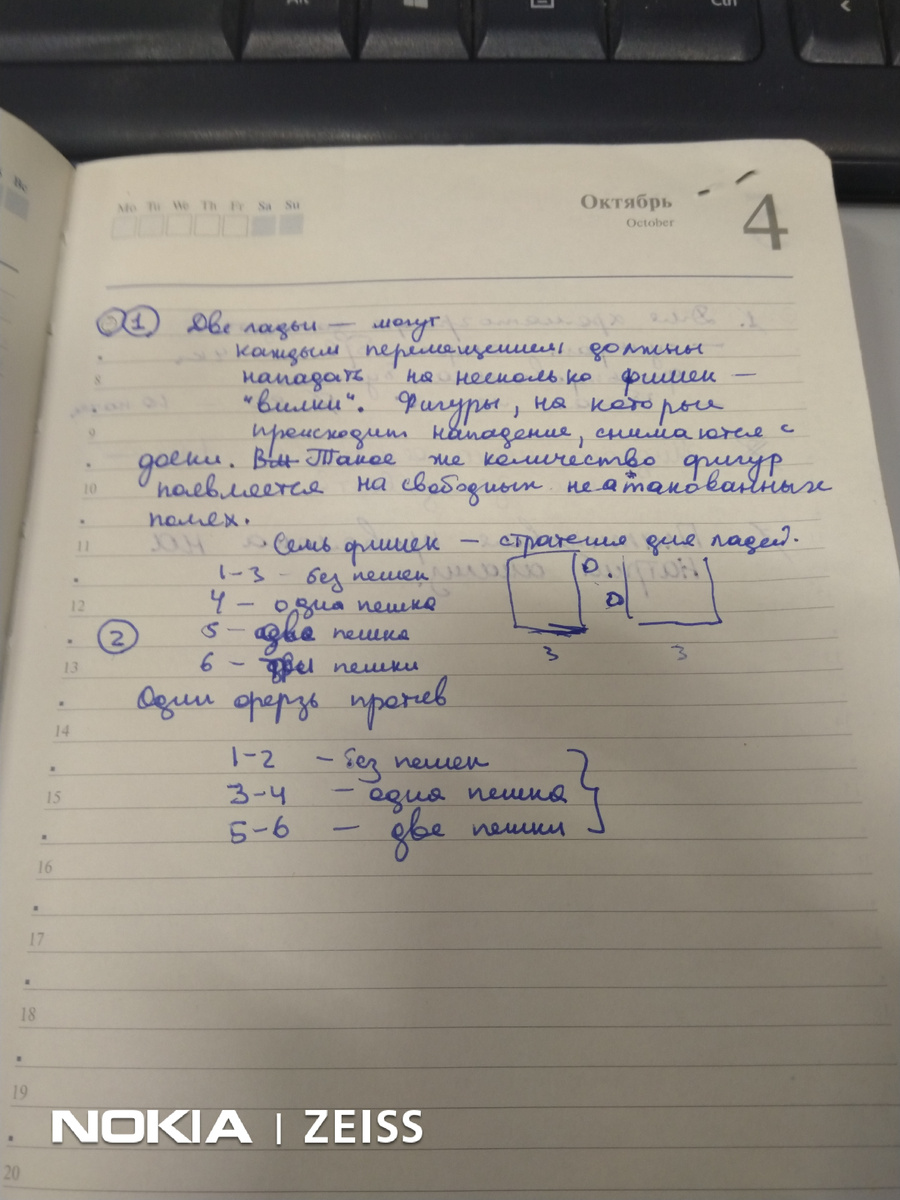 Alt
Ctrl
<
Вс
Mo Tu We Th Fr Sa Su
Октябрь
October
4
1 Две ладьи — могут
каждым перемещением должны
8 нападать на несколько фишек —
"вилки". Фигуры, на которые
9 происходит нападение, снимаются с
доски. Такое же количество фигур
10 появляется на свободных неатакованных
полях.
11 Семь фишек — стратегия для ладей.
1-3 - без пешек
12 4 — одна пешка
2 5 — две пешка
13 6 — три пешки
Один ферзь против
14
1-2 — без пешек
15 3-4 — одна пешка
5-6 — две пешки
3 3
16
17
18
19
20
NOKIA | ZEISS